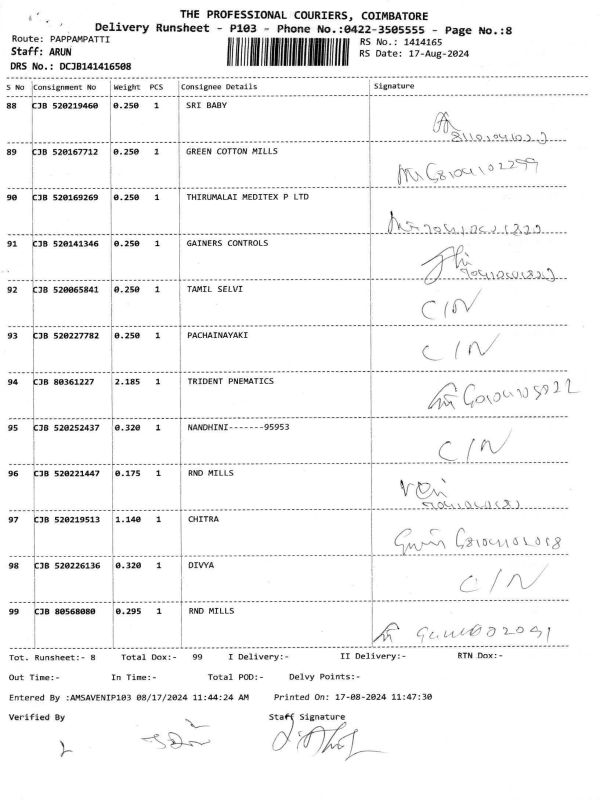 THE PROFESSIONAL COURIERS, COIMBATORE
Delivery Runsheet - P103 - Phone No.:0422-3505555 - Page No.:8
Route: PAPPAMPATTI
RS No.: 1414165
Staff: ARUN
RS Date: 17-Aug-2024
DRS No.: DCJB141416508
S No Consignment No Weight PCS Consignee Details Signature
88 CJB 520219460 0.250 1 SRI BABY
89 CJB 520167712 0.250 1 GREEN COTTON MILLS
90 CJB 520169269 0.250 1 THIRUMALAI MEDITEX P LTD
91 CJB 520141346 0.250 1 GAINERS CONTROLS
92 CJB 520065841 0.250 1 TAMIL SELVI C/N
93 CJB 520227782 0.250 1 PACHAINAYAKI C/N
94 CJB 80361227 2.185 1 TRIDENT PNEMATICS
95 CJB 520252437 0.320 1 NANDHINI-------95953 C/N
96 CJB 520221447 0.175 1 RND MILLS
97 CJB 520219513 1.140 1 CHITRA
98 CJB 520226136 0.320 1 DIVYA C/N
99 CJB 80568080 0.295 1 RND MILLS
Tot. Runsheet:- 8 Total Dox:- 99 I Delivery:- II Delivery:- RTN Dox:-
Out Time:- In Time:- Total POD:- Delvy Points:-
Entered By :AMSAVENIP103 08/17/2024 11:44:24 AM Printed On: 17-08-2024 11:47:30
Verified By Staff Signature